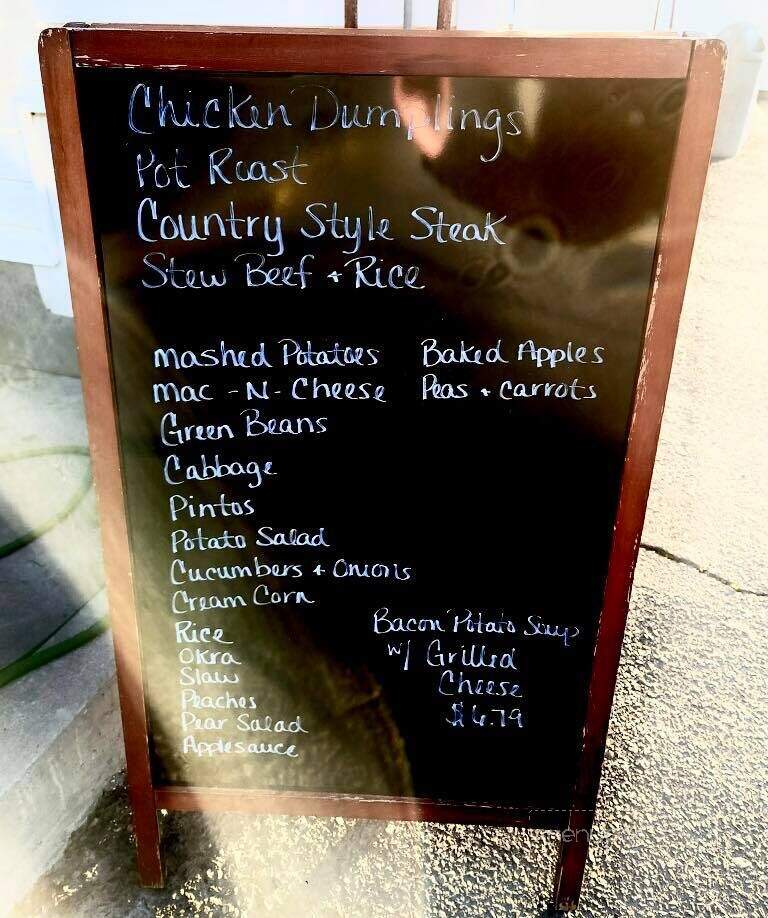 Chicken Dumplings
Pot Roast
Country Style Steak
Stew Beef + Rice
Mashed Potatoes
Mac-N-Cheese
Green Beans
Cabbage
Pintos
Potato Salad
Cucumbers + Onions
Cream Corn
Rice
Okra
Slaw
Peaches
Pear Salad
Applesauce
Baked Apples
Peas + Carrots
Bacon Potato Soup
w/ Grilled
Cheese
$6.79